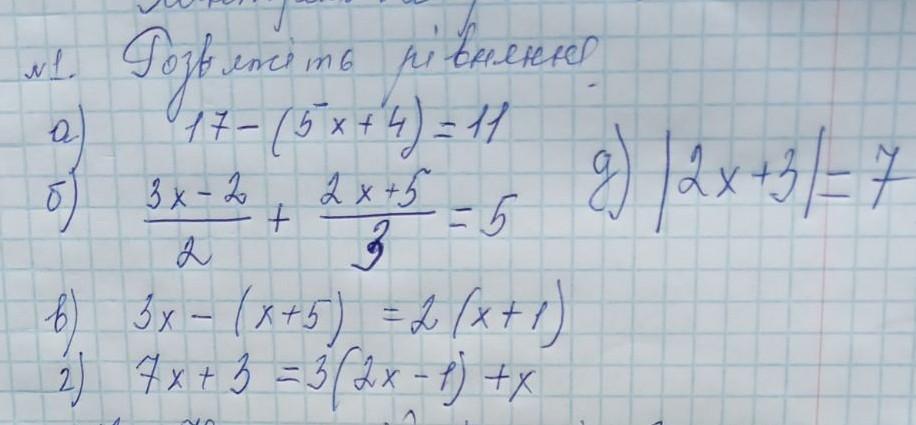 №1. Розв'яжіть рівняння
а) 17-(5x+4)=11
б) \frac{3x-2}{2} + \frac{2x+5}{3} = 5
в) 3x-(x+5) =2(x+1)
г) 7x+3 =3(2x-1)+x
д) |2x+3|=7